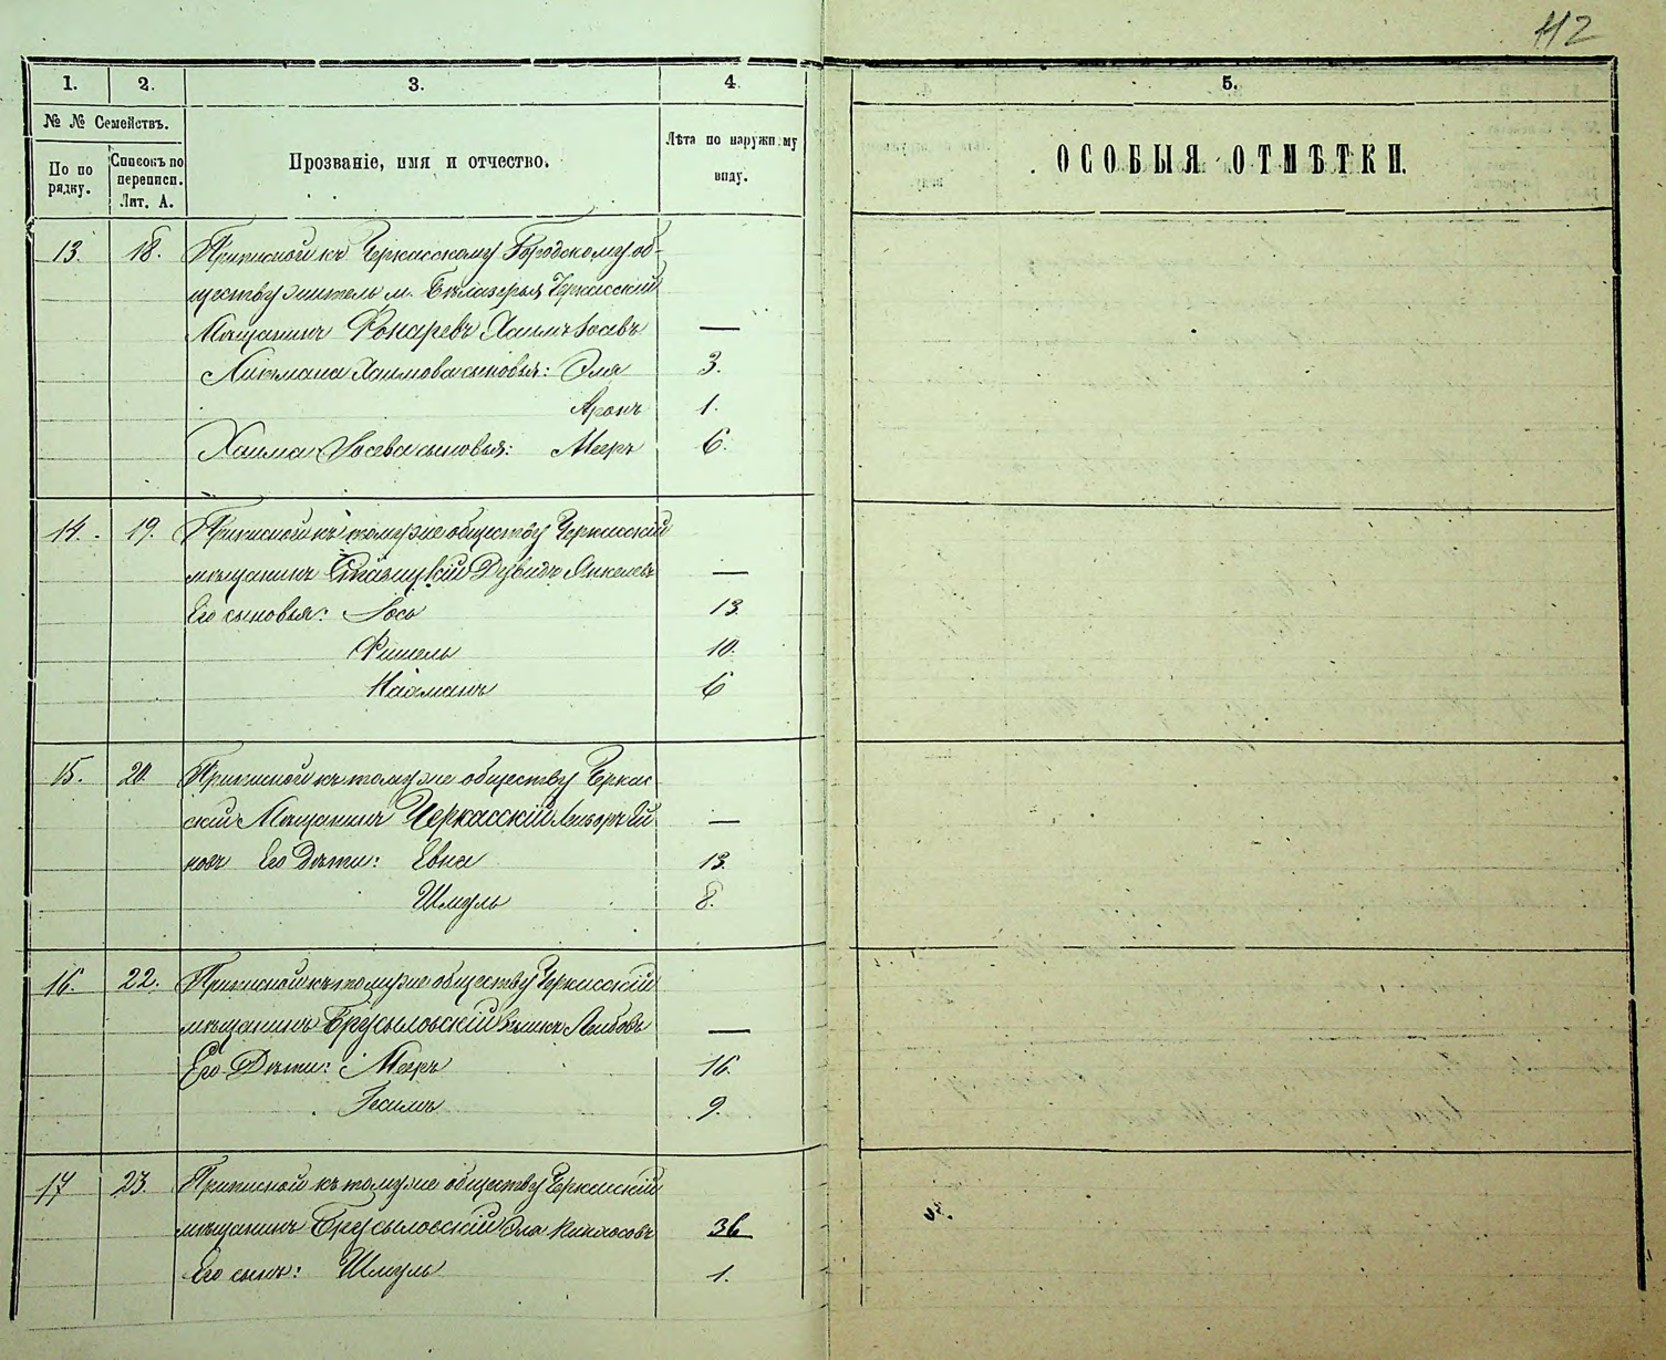 112
1. 2. 3. 4 5.
№ № Семействъ.
По по рядку.
Списокъ по переписи. Лит. А.
Прозваніе, имя и отчество.
Лѣта по наружному виду.
ОСОБЫЯ ОТМѢТКИ.
13. 18. Приписной къ Черкасскому Городскому об-
ществу житель м. Бѣлазерья Черкасскій
Мѣщанинъ Фонаревъ Хаимъ Іосевъ —
Хаимова сыновья: Эля 3.
Аронъ 1.
Хаима Іосева сыновья: Мееръ 6.
14. 19. Приписной къ томуже обществу Черкасскій
мѣщанинъ Дувидъ Янкелевъ —
Его сыновья: Іось 13.
Фишель 10.
Нахманъ 6
15. 20 Приписной къ томуже обществу Черкас
скій Мѣщанинъ Черкасскій Лейзоръ Ей —
новъ Его Дѣти: Евна 13.
Шмуль 8.
16. 22. Приписной къ томуже обществу Черкасскій
мѣщанинъ Брусыловскій Лейбовъ —
Его Дѣти: Мееръ 16.
9.
17 23. Приписной къ томуже обществу Черкасскій
мѣщанинъ Брусыловскій Эля Пинхосовъ 36
Его сынъ: Шмуль 1.